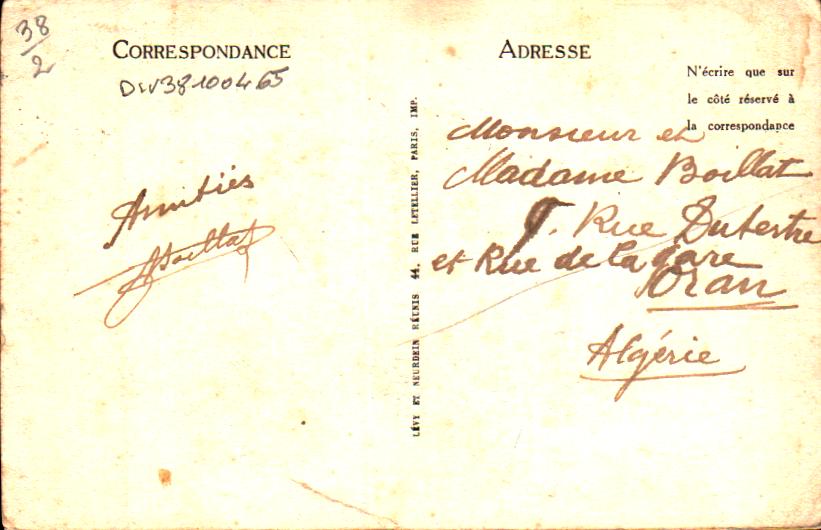 38
2
CORRESPONDANCE
Div38100465
Amitiés
Boillat
LÉVY ET NEURDEIN RÉUNIS 44, RUE LETELLIER, PARIS, IMP.
ADRESSE
N'écrire que sur
le côté réservé à
la correspondance
Monsieur et
Madame Boillat
Rue Dutertre
et Rue de la gare
Oran
Algérie